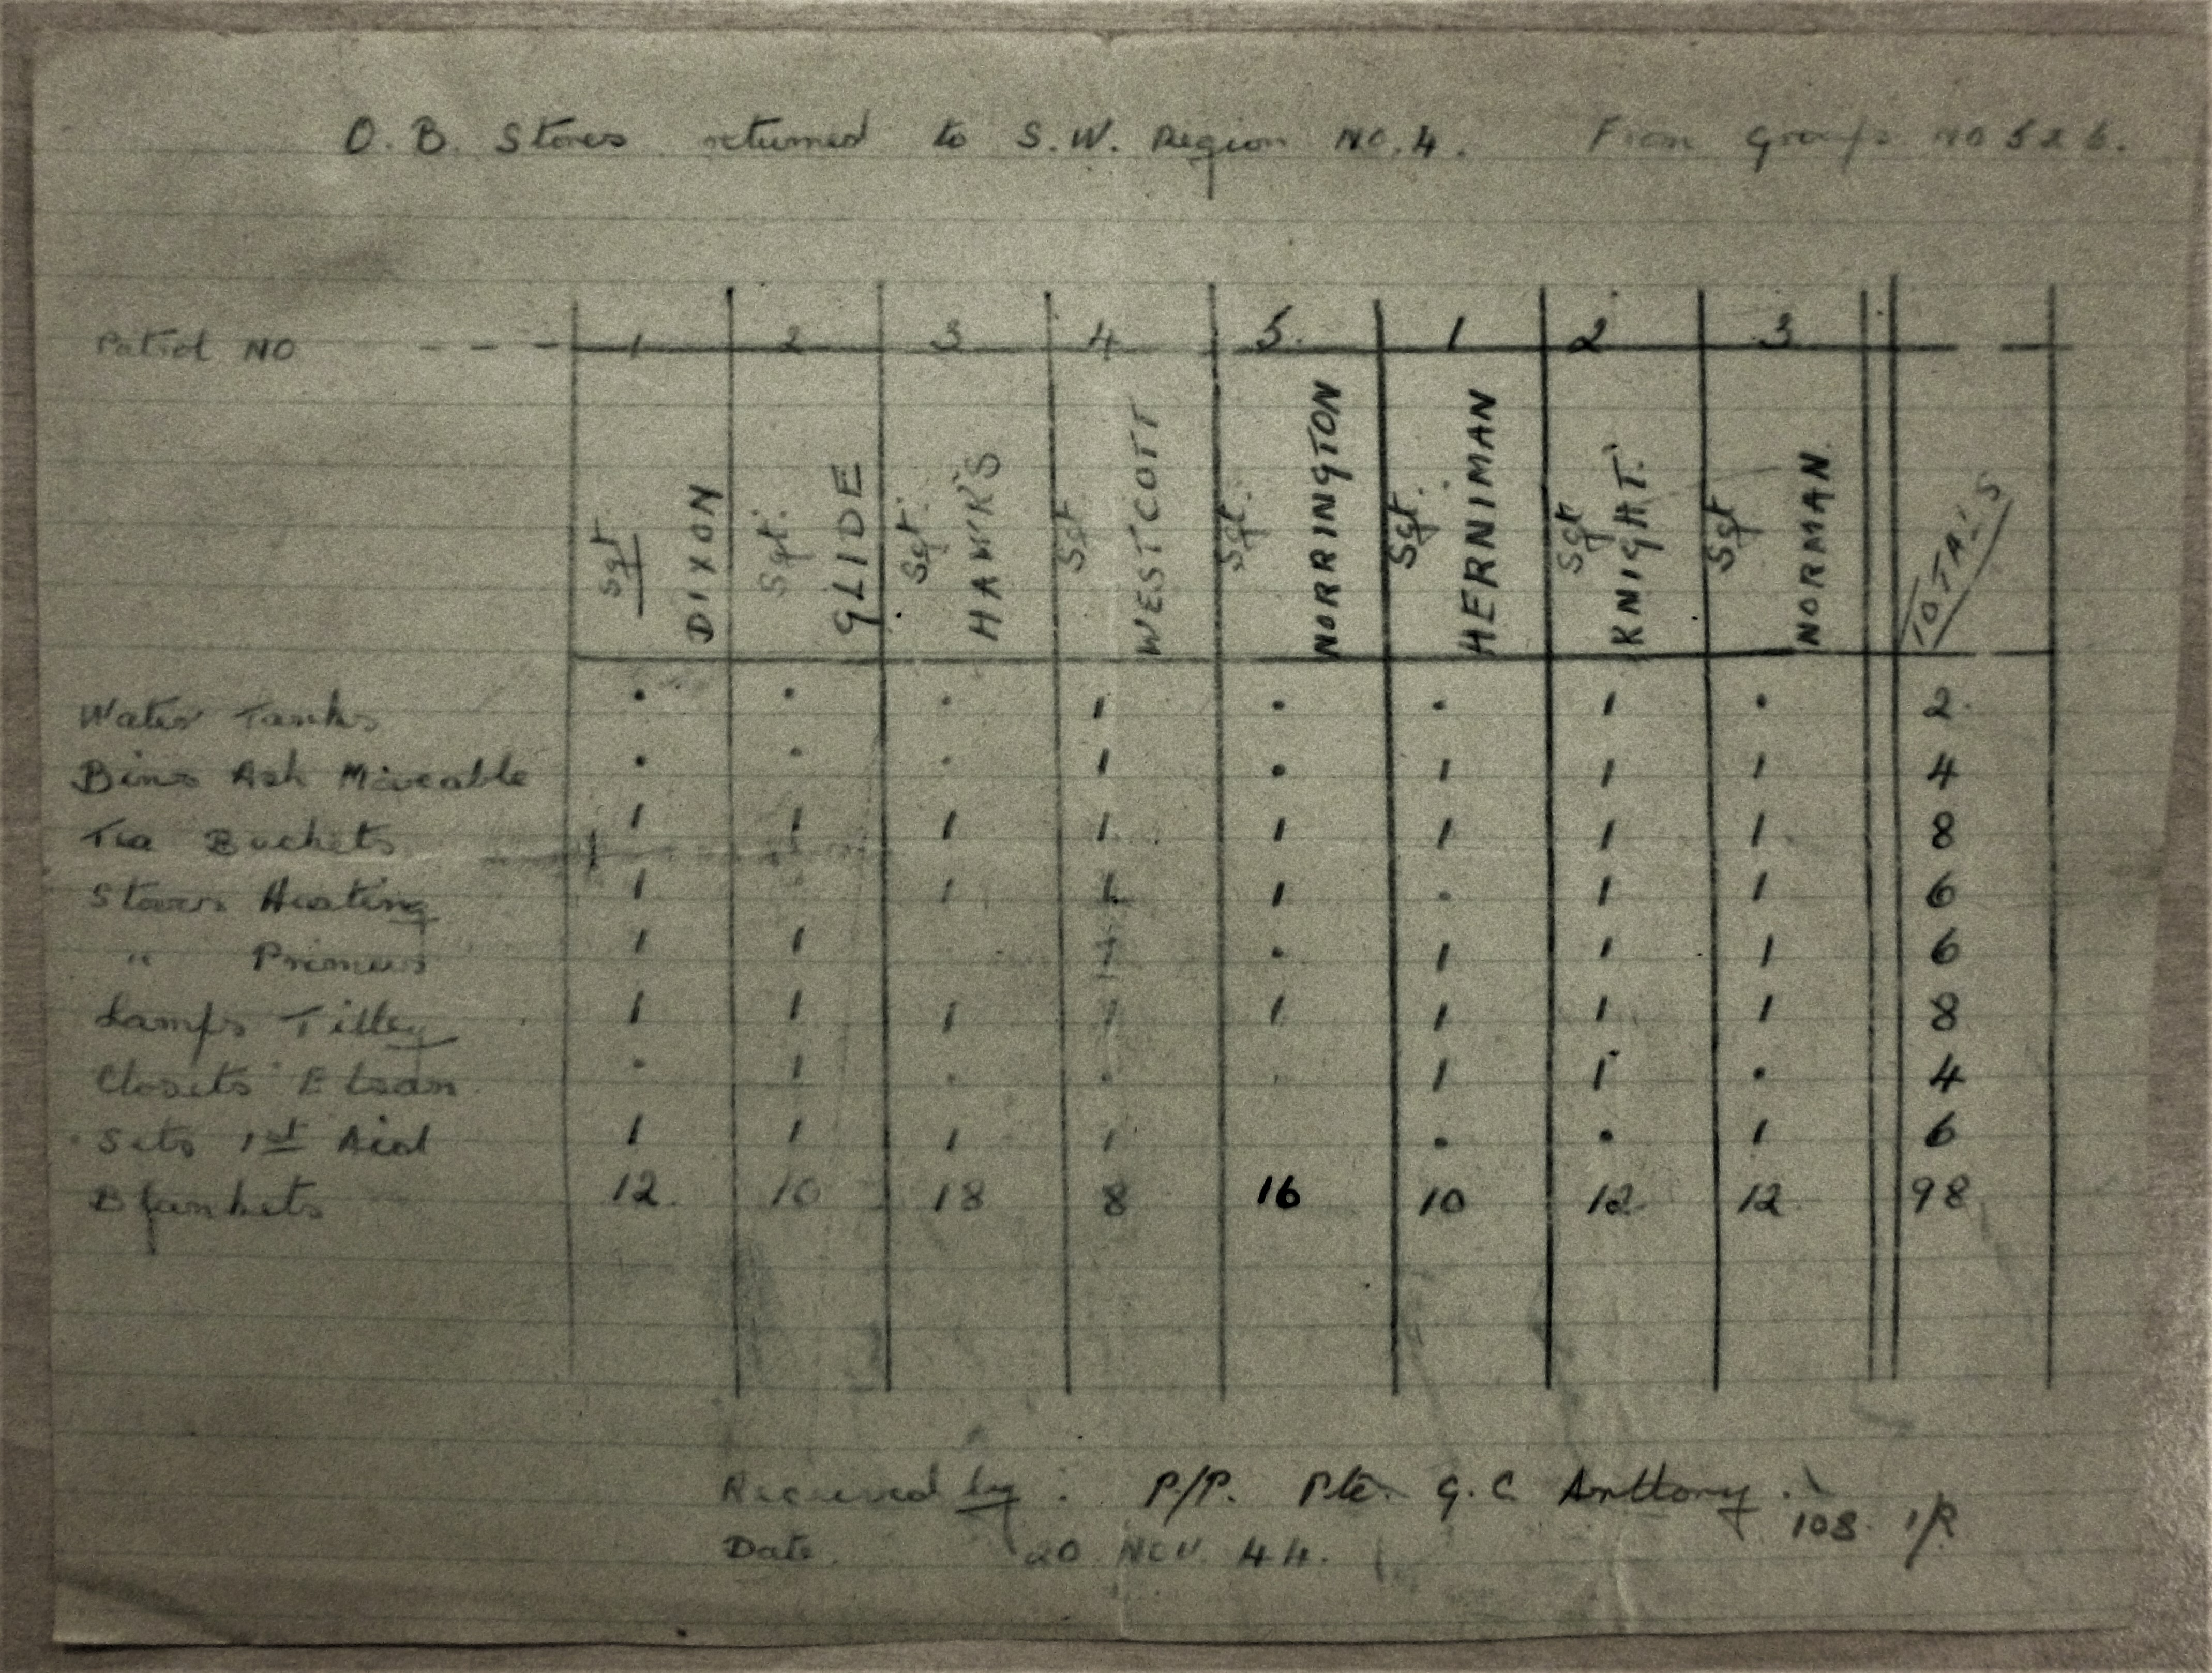 O. B. Stores returned to S.W. Region NO. 4. From Groups NO 5 & 6.
Patrol NO - - - 1 2 3 4 5. 1 2 3
Sgt DIXON Sgt. GLIDE Sgt. HAWK'S Sgt WESTCOTT Sgt. NORRINGTON Sgt. HERNIMAN Sgt KNIGHT. Sgt NORMAN. TOTALS
Water Tanks . . . 1 . . 1 . 2.
Bins Ash Moveable . . . 1 . 1 1 1 4
Tea Buckets 1 1 1 1 1 1 1 1 8
Stoves Heating 1 1 1 1 . 1 1 6
" Primus 1 1 1 . 1 1 1 6
Lamps Tilley 1 1 1 1 1 1 1 1 8
Closets Elsan . 1 . . 1 1 . 4
Sets 1st Aid 1 1 1 1 . . 1 6
Blankets 12 10 18 8 16 10 12 12 98
Received by : P/P. Pte. G. C Anttony.
108. 1/R
Date 20 NOV 44.